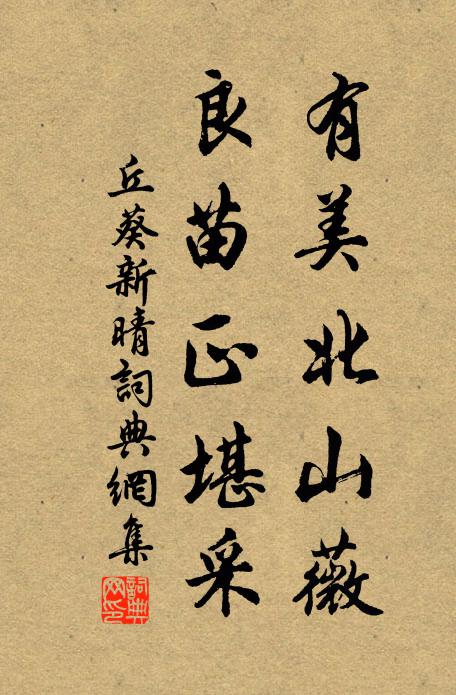 有美北山薇
良苗正堪采
丘葵新晴詞典網集
詞典網印